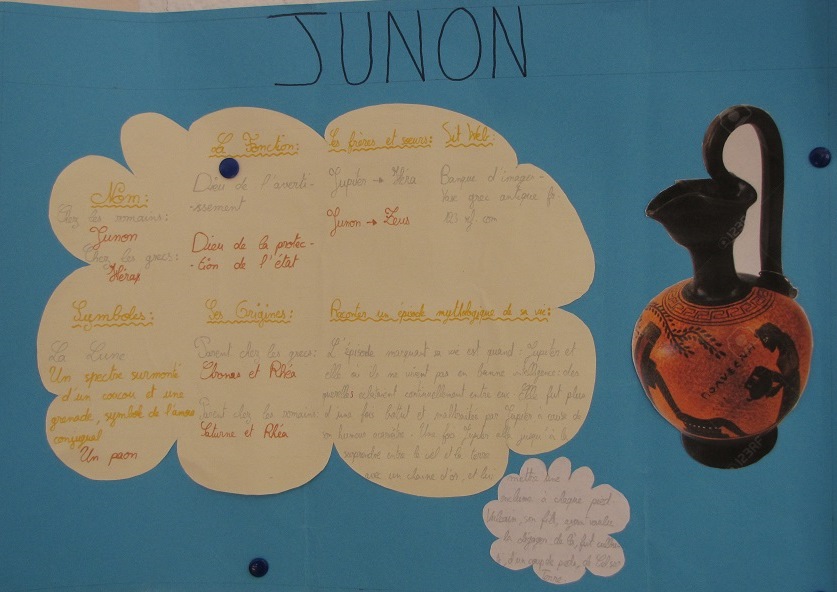 JUNON
Nom:
Chez les romains:
Junon
Chez les grecs:
Héras
La Fonction:
Dieu de l'averti-
-ssement
Dieu de la protec-
-tion de l'état
Les frères et sœurs:
Jupiter → Héra
Junon → Zeus
Sit Web:
Banque d'images-
Vase grec antique fr.
123 rf. com
Symboles:
La Lune
Un spectre surmonté
d'un coucou et une
grenade, symbole de l'amour
conjugual
Un paon
Les Origines:
Parent chez les grecs:
Chronos et Rhéa
Parent chez les romains:
Saturne et Rhéa
Raconter un épisode mythologique de sa vie:
L'épisode marquant sa vie est quand Jupiter et
elle où ils ne vivent pas en bonne intelligence: des
querelles éclatent continuellement entre eux. Elle fut plus
d'une fois battut et maltraitée par Jupiter a cause de
son humour . Une fois Jupiter alla jusqu'à la
suspendre entre le ciel et la terre
avec un chaine d'or, et lui
mettre une
enclume à chaque pied.
Vulcain, son fils, ayant voulu
la dégager de là, fut culbuté
d'un coup de pied, de Ciel sur
Terre
ΠΟΛΥ
123RF